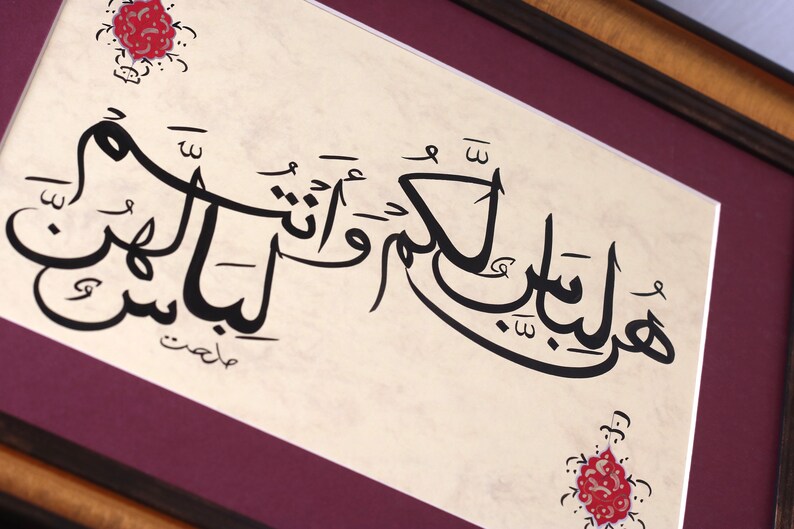 هُنَّ لِبَاسٌ لَّكُمْ وَأَنْتُمْ لِبَاسٌ لَهُنَّ